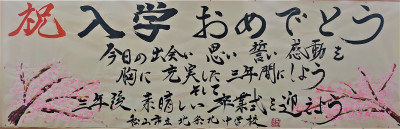 祝 入学おめでとう
今日の出会い 思い 誓い 感動を
胸に 充実した 三年間にしよう
そして
三年後、素晴しい 卒業式を迎えよう
松山市立 北条北中学校